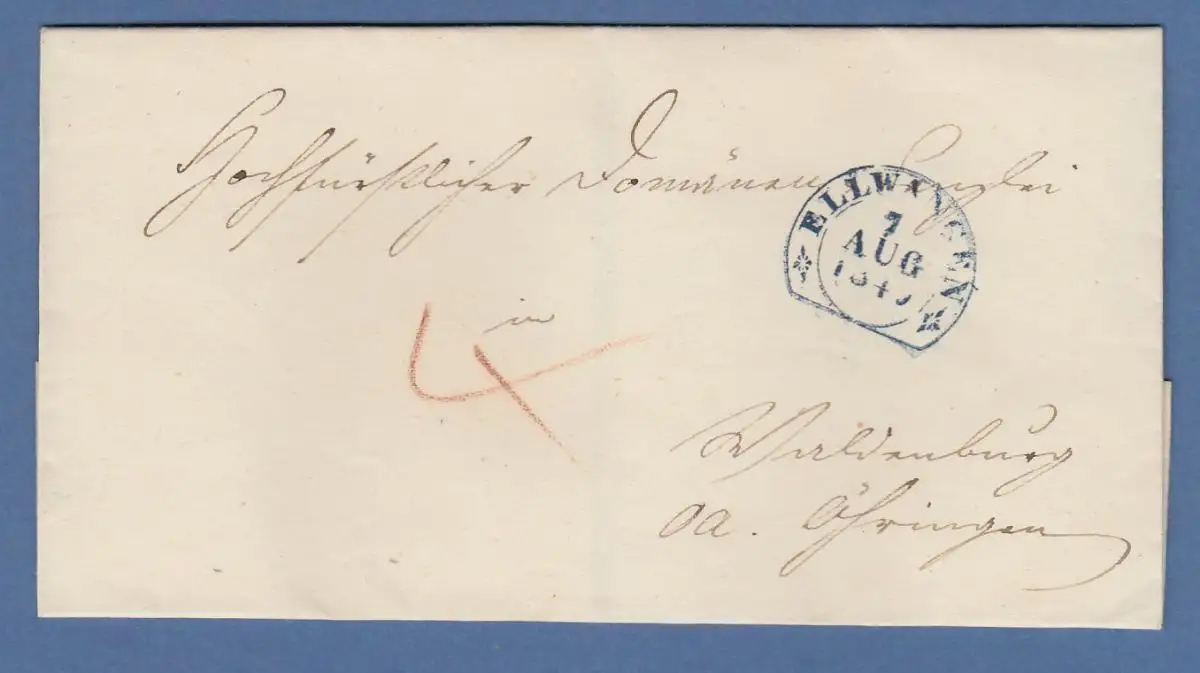 Hochfürstlicher Domänen Canzlei
ELLWANGEN
7
AUG
184
in
4
Waldenburg
OA. Öhringen